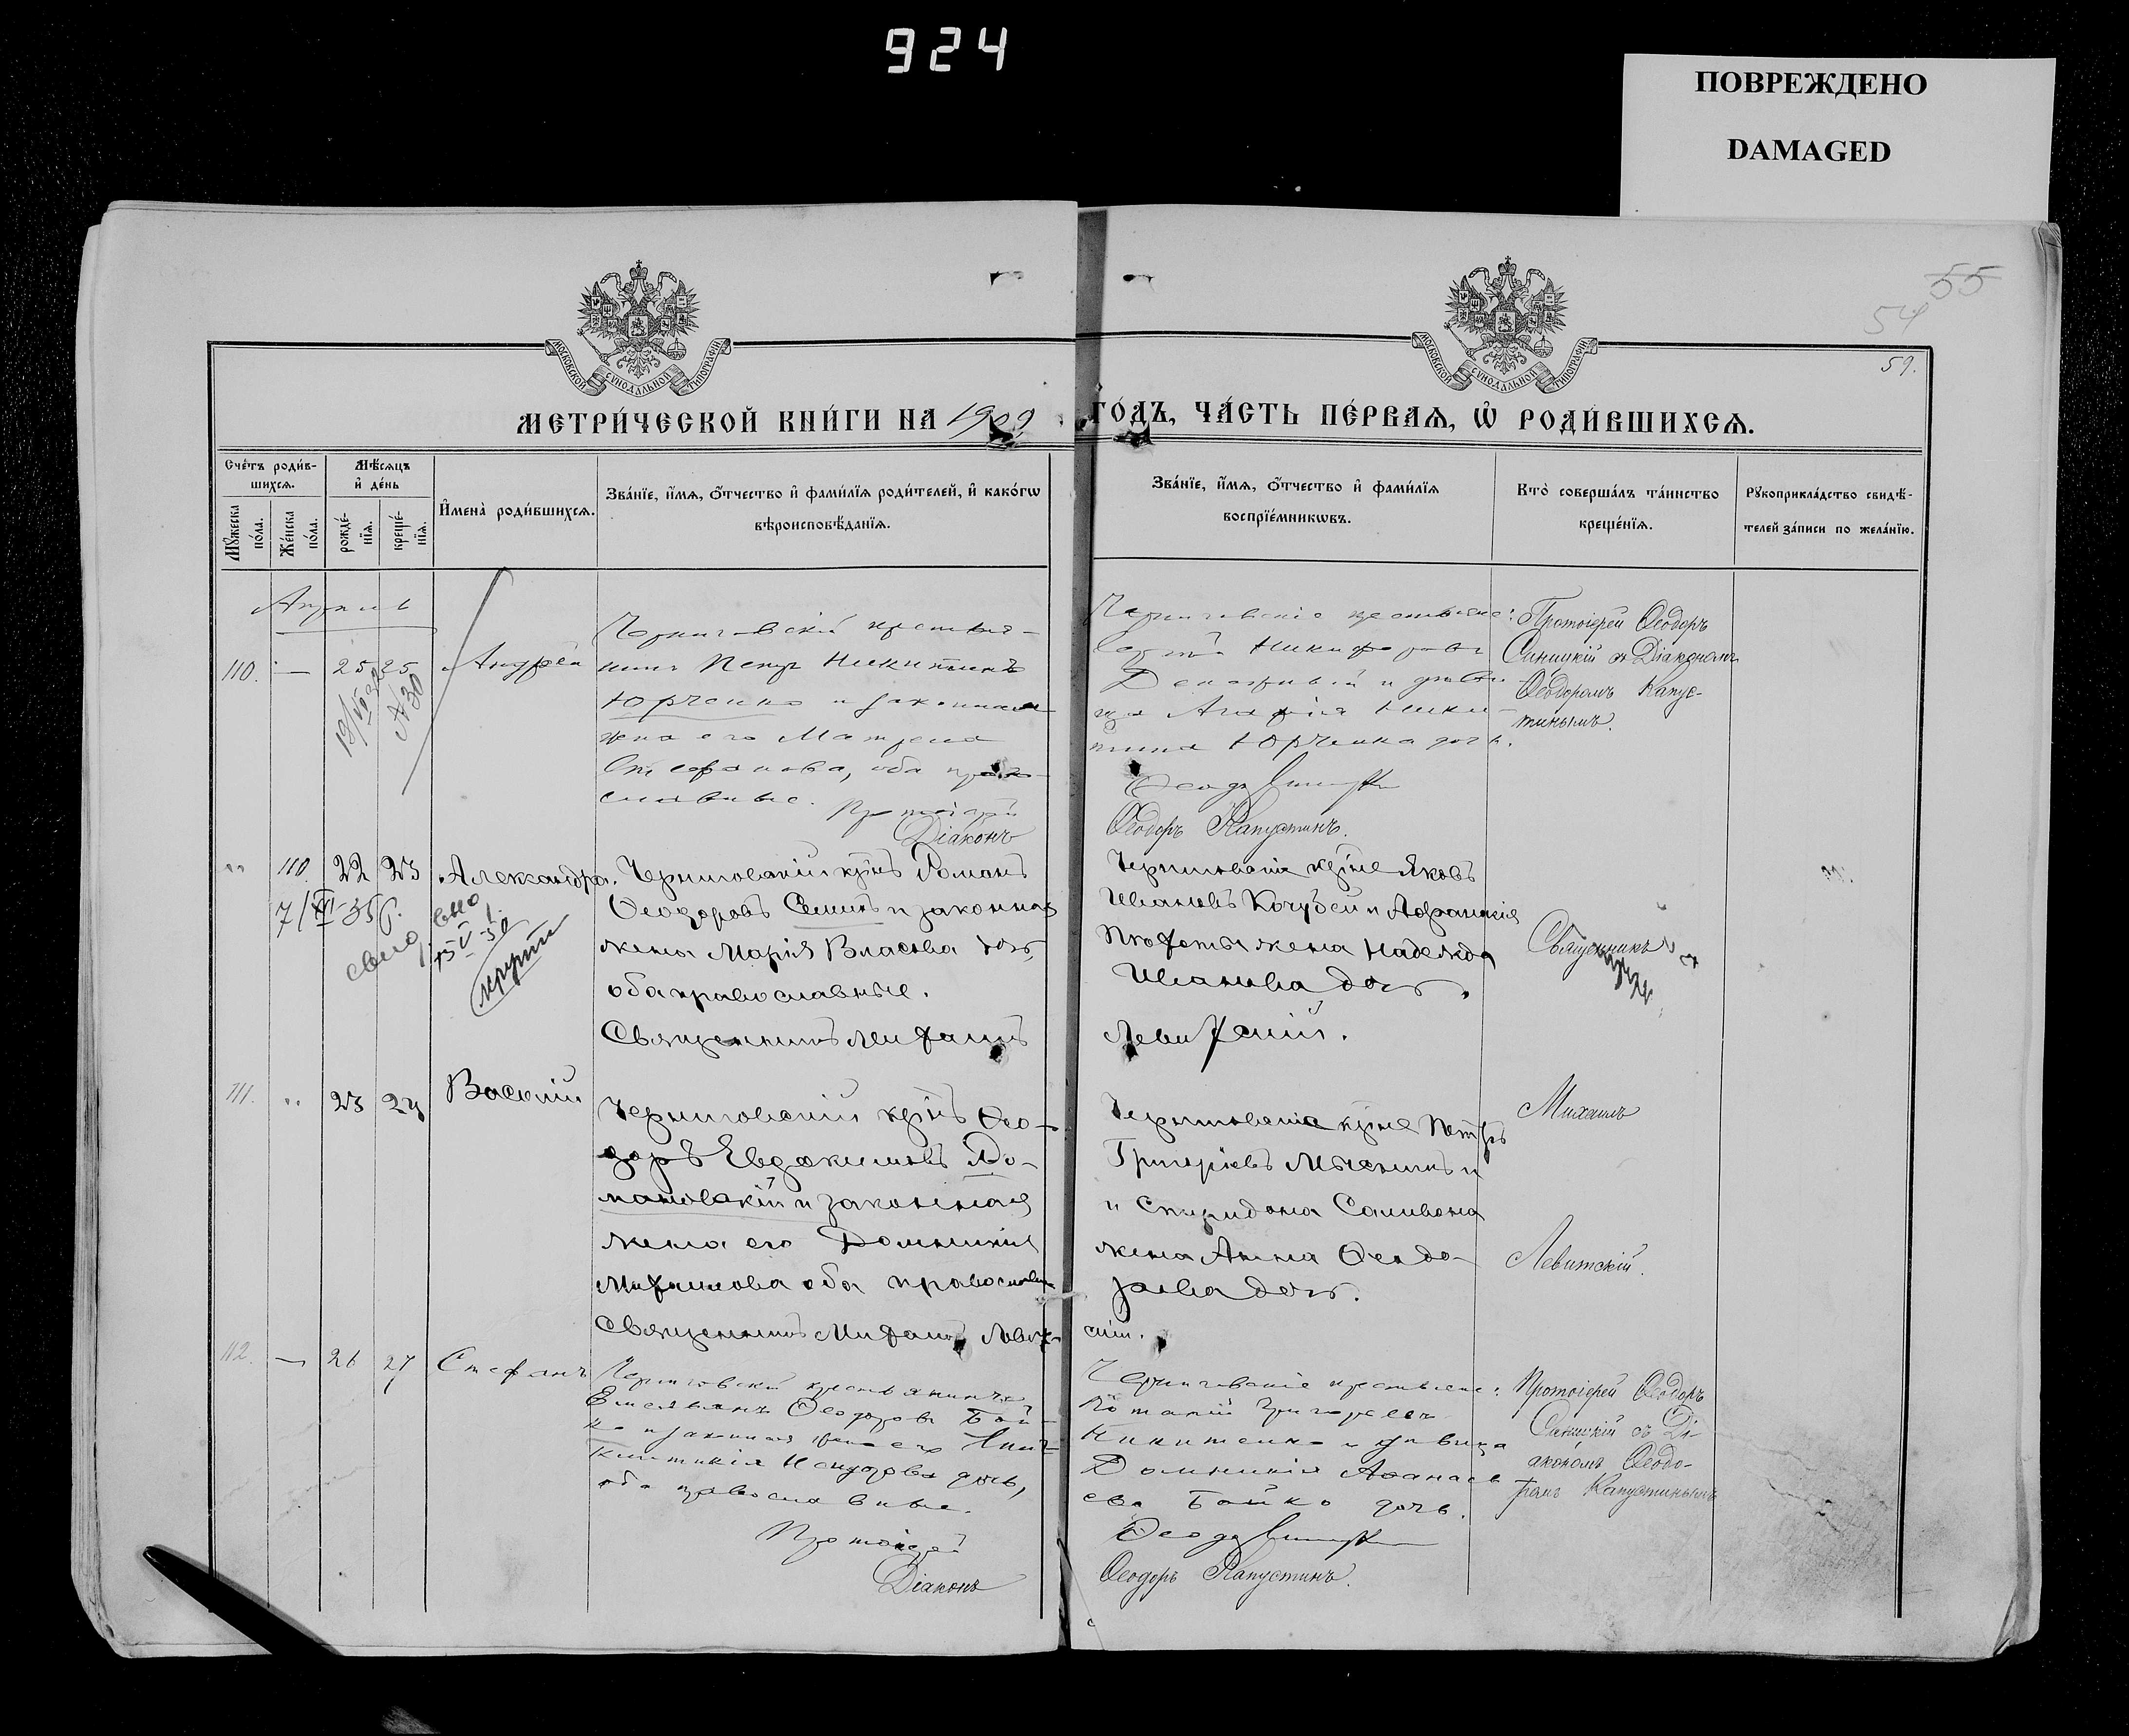 924
ПОВРЕЖДЕНО
DAMAGED
55
54
59.
МОСКОВСКОЙ СѴНОДАЛЬНОЙ ТИПОГРАФІИ
МОСКОВСКОЙ СѴНОДАЛЬНОЙ ТИПОГРАФІИ
МЕТРИ́ЧЕСКОЙ КНИ́ГИ НА 1909 ГО́ДЪ, ЧА́СТЬ ПЕ́РВАѦ, Ѡ҆ РОДИ́ВШИХСѦ.
Сче́тъ роди́в-
шихсѧ.
Мꙋ́жеска по́ла.
Же́нска по́ла.
Мѣ́сѧцъ
и҆ де́нь
рожде́-
нїѧ.
креще́-
нїѧ.
И҆мена̀ роди́вшихсѧ.
Зва́нїе, и҆́мѧ, ѻ҆́тчество и҆ фами́лїѧ роди́телей, и҆ како́гѡ
вѣроисповѣ́данїѧ.
Зва́нїе, и҆́мѧ, ѻ҆́тчество и҆ фами́лїѧ
воспрїе́мникѡвъ.
Кто̀ соверша́лъ та́инство
креще́нїѧ.
Рꙋкоприкла́дство свидѣ́-
телей за́писи по жела́нїю.
Апрель
110. — 25 25 Андрей
№30
Черниговскій крестья-
нинъ Петръ Никитинъ
Юрченко и законная
жена его Матрона
Стефанова, оба право-
славные. Протоіерей
Діаконъ
Черниговскіе крестьяне:
Никифоровъ
и деви-
ца Агафія Ники-
тина Юрченко дочь.
Ѳеодоръ Капустинъ.
Протоіерей Ѳеодоръ
Синицкій съ Діакономъ
Ѳеодоромъ Капус-
тинымъ.
" 110. 22 23 Александра.
Черниговскій кр҃нъ Романъ
Ѳеодоровъ Семинъ и законная
жена Марія Власова доч,
оба православные.
Священникъ Михаилъ
Черниговскіе кр҃не Яковъ
Ивановъ Кочубей и
жена Надежда
Иванова доч.
Левитскій.
Священникъ
111. " 23 24 Василій
Черниговскій кр҃нъ Ѳео-
доръ Евдокимовъ До-
мановскій и законная
жена его Домникія
Михаилова оба православн
Священникъ Михаилъ Левит-
Черниговскіе кр҃не Петръ
Григоріевъ и
и Спиридона Саливона
жена Анна Ѳеодо-
рова доч.
скій.
Михаилъ
Левитскій.
112. — 26 27 Стефанъ
Черниговскій крестьянинъ
Емельянъ Ѳеодоровъ Бой-
ко и законная жена его Син-
клитикія дочь,
оба православные.
Протоіерей
Діаконъ
Черниговскіе крестьяне:
Григорьевъ
Никитенко и девица
Домникія Аѳанась
ева Бойко дочь.
Ѳеодоръ Капустинъ.
Протоіерей Ѳеодоръ
Синицкій съ Ді-
акономъ Ѳеодо-
ромъ Капустинымъ